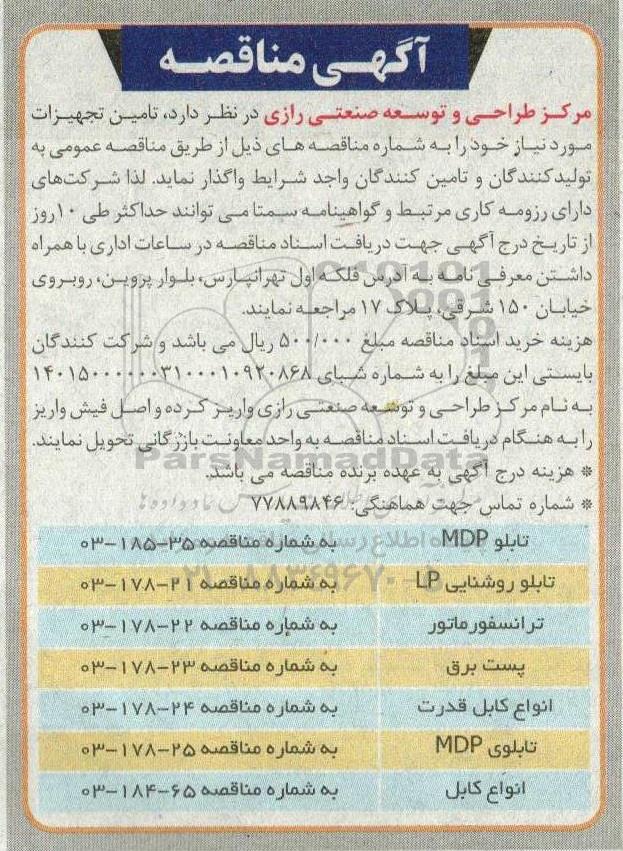 آگهی مناقصه
مرکز طراحی و توسعه صنعتی رازی در نظر دارد، تامین تجهیزات
مورد نیاز خود را به شماره مناقصه های ذیل از طریق مناقصه عمومی به
تولیدکنندگان و تامین کنندگان واجد شرایط واگذار نماید. لذا شرکت‌های
دارای رزومه کاری مرتبط و گواهینامه سمتا می توانند حداکثر طی ۱۰ روز
از تاریخ درج آگهی جهت دریافت اسناد مناقصه در ساعات اداری با همراه
داشتن معرفی نامه به آدرس فلکه اول تهرانپارس، بلوار پروین، روبروی
خیابان ۱۵۰ شرقی، پلاک ۱۷ مراجعه نمایند.
هزینه خرید اسناد مناقصه مبلغ ۵۰۰/۰۰۰ ریال می باشد و شرکت کنندگان
بایستی این مبلغ را به شماره شبای ۱۴۰۱۵۰۰۰۰۰۰۰۳۱۰۰۰۱۰۹۲۰۸۶۸
به نام مرکز طراحی و توسعه صنعتی رازی واریز کرده و اصل فیش واریز
را به هنگام دریافت اسناد مناقصه به واحد معاونت بازرگانی تحویل نمایند.
* هزینه درج آگهی به عهده برنده مناقصه می باشد.
* شماره تماس جهت هماهنگی: ۷۷۸۸۹۸۴۶
تابلو MDP به شماره مناقصه ۳۵-۱۸۵-۰۳
تابلو روشنایی LP به شماره مناقصه ۲۱-۱۷۸-۰۳
ترانسفورماتور به شماره مناقصه ۲۲-۱۷۸-۰۳
پست برق به شماره مناقصه ۲۳-۱۷۸-۰۳
انواع کابل قدرت به شماره مناقصه ۲۴-۱۷۸-۰۳
تابلوی MDP به شماره مناقصه ۲۵-۱۷۸-۰۳
انواع کابل به شماره مناقصه ۶۵-۱۸۴-۰۳
ParsNamadData
۰۲۱-۸۸۳۴۹۶۷۰-۵